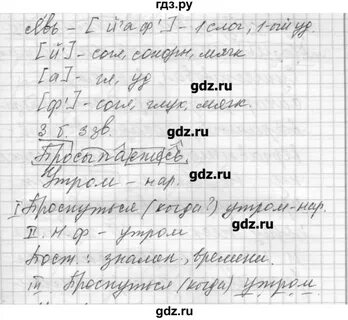 гдз.ру
Явь – [й'аф'] – 1 слог, 1-ый уд.
[й'] – согл, сонорн, мягк
[а] – гл, уд
[ф'] – согл, глух, мягк.
3 б. 3 зв.
gdz.ru
Просыпаетесь
Утром – нар.
gdz.ru
I Проснуться (когда?) утром – нар.
II. Н.ф – утром
gdz.ru
Пост.: знамен, времени.
III Проснуться (когда) утром
gdz.ru